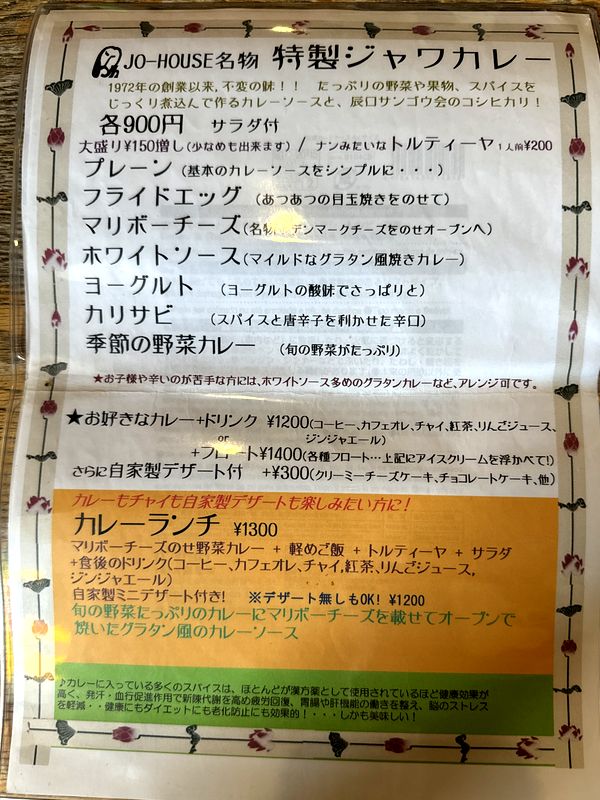 JO-HOUSE名物 特製ジャワカレー
1972年の創業以来,不変の味！！ たっぷりの野菜や果物、スパイスを
じっくり煮込んで作るカレーソースと、辰口サンゴウ会のコシヒカリ！
各900円 サラダ付
大盛り¥150増し(少なめも出来ます) / ナンみたいなトルティーヤ1人前¥200
プレーン (基本のカレーソースをシンプルに・・・)
フライドエッグ (あつあつの目玉焼きをのせて)
マリボーチーズ(名物 デンマークチーズをのせオーブンへ)
ホワイトソース(マイルドなグラタン風焼きカレー)
ヨーグルト (ヨーグルトの酸味でさっぱりと)
カリサビ (スパイスと唐辛子を利かせた辛口)
季節の野菜カレー (旬の野菜がたっぷり)
★お子様や辛いのが苦手な方には、ホワイトソース多めのグラタンカレーなど、アレンジ可です。
★お好きなカレー+ドリンク ¥1200(コーヒー、カフェオレ、チャイ,紅茶、りんごジュース、
or ジンジャエール)
+フロート¥1400(各種フロート…上記にアイスクリームを浮かべて!)
さらに自家製デザート付 +¥300(クリーミーチーズケーキ、チョコレートケーキ、他)
カレーもチャイも自家製デザートも楽しみたい方に！
カレーランチ ¥1300
マリボーチーズのせ野菜カレー + 軽めご飯 + トルティーヤ + サラダ
+食後のドリンク(コーヒー、カフェオレ、チャイ,紅茶、りんごジュース,
ジンジャエール)
自家製ミニデザート付き! ※デザート無しもOK! ¥1200
旬の野菜たっぷりのカレーにマリボーチーズを載せてオーブンで
焼いたグラタン風のカレーソース
♪カレーに入っている多くのスパイスは、ほとんどが漢方薬として使用されているほど健康効果が
高く、発汗・血行促進作用で新陳代謝を高め疲労回復、胃腸や肝機能の働きを整え、脳のストレス
を軽減・・健康にもダイエットにも老化防止にも効果的！・・・しかも美味しい！